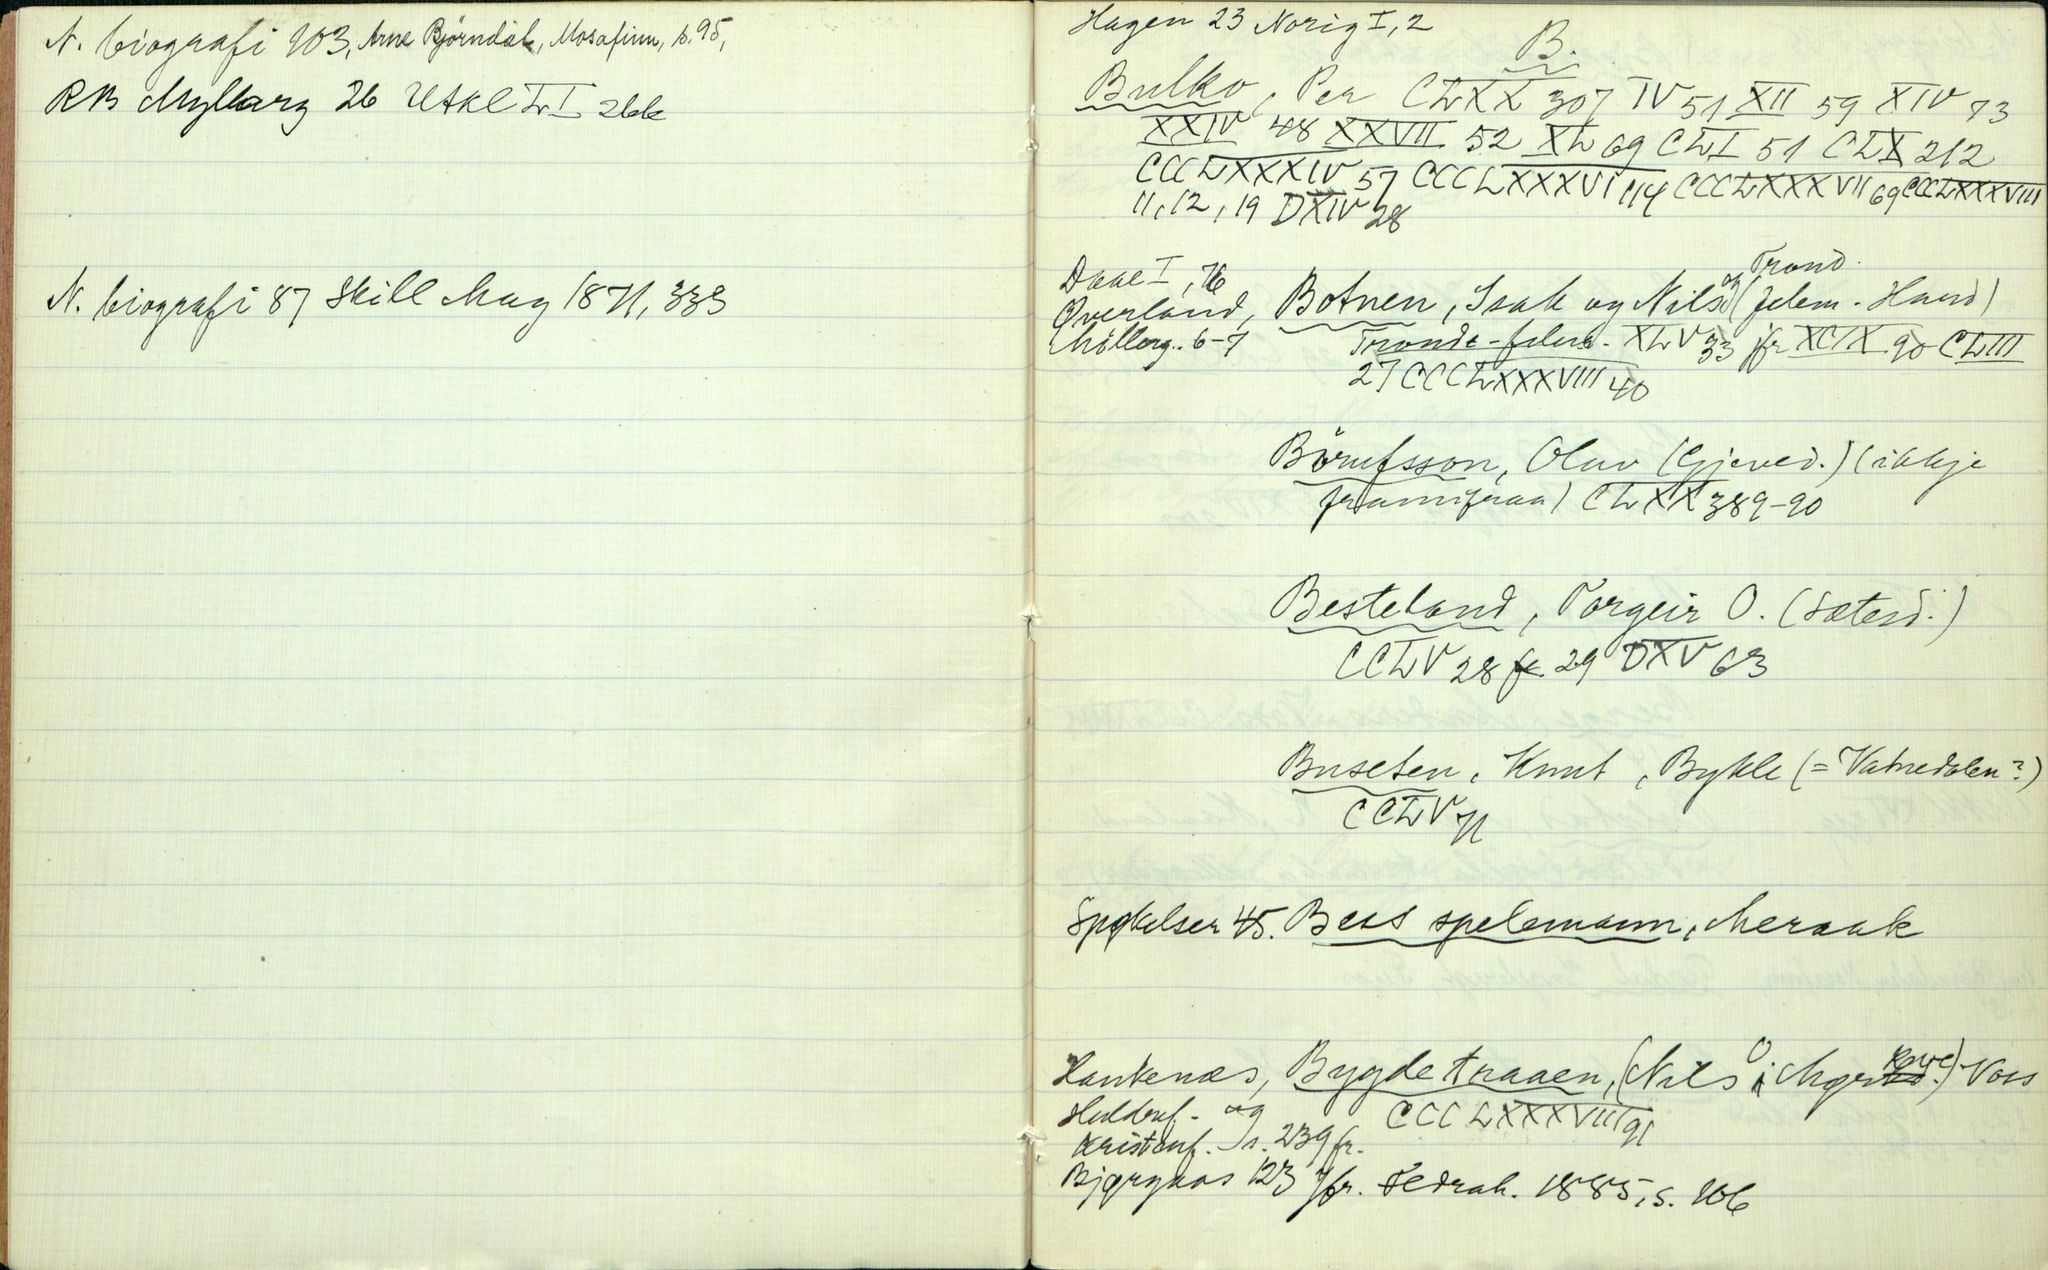 N. biografi 103, Arne Björndal, Mosafinn, s. 95,
RB Myllarg 26 Utkl LI 266
N. biografi 87 Skill Mag 1871, 333
Hagen 23 Norig I, 2
B.
Bulko, Per CLXX 307 IV 51 XII 59 XIV 73
XXIV 48 XXVII 52 XL 69 CLI 51 CLX 212
CCCLXXXIV 57 CCCLXXXVI 114 CCCLXXXVII 69 CCCLXXXVIII
11, 12, 19 DXIV 28
Daae I, 76
Trond
Øverland, Botnen, Isak og Nils og (felem. Hard)
Mölleg. 6-7 Tronds-felen. XLV 33 jfr XCIX 90 CLIII
27 CCCLXXXVIII 40
Börufsson, Olav (Gjeved.) (ikkje
framifraa) CLXX 389-90
Besteland, Torgeir O. (Sætesd.)
CCLV 28 29 DXV 63
Buseten, Knut, Bykle (= Vatnedalen?)
CCLV 71
Spøkelser 45. Beas spelemann, Meraak
Haukenæs, Bygdetraaen, (Nils O Møen) Voss
Huldref. og CCCLXXXVIII 91
Kristenf. s. 239 fr.
Bjørgaas 123 Jfr. Fedrah. 1885, s. 106